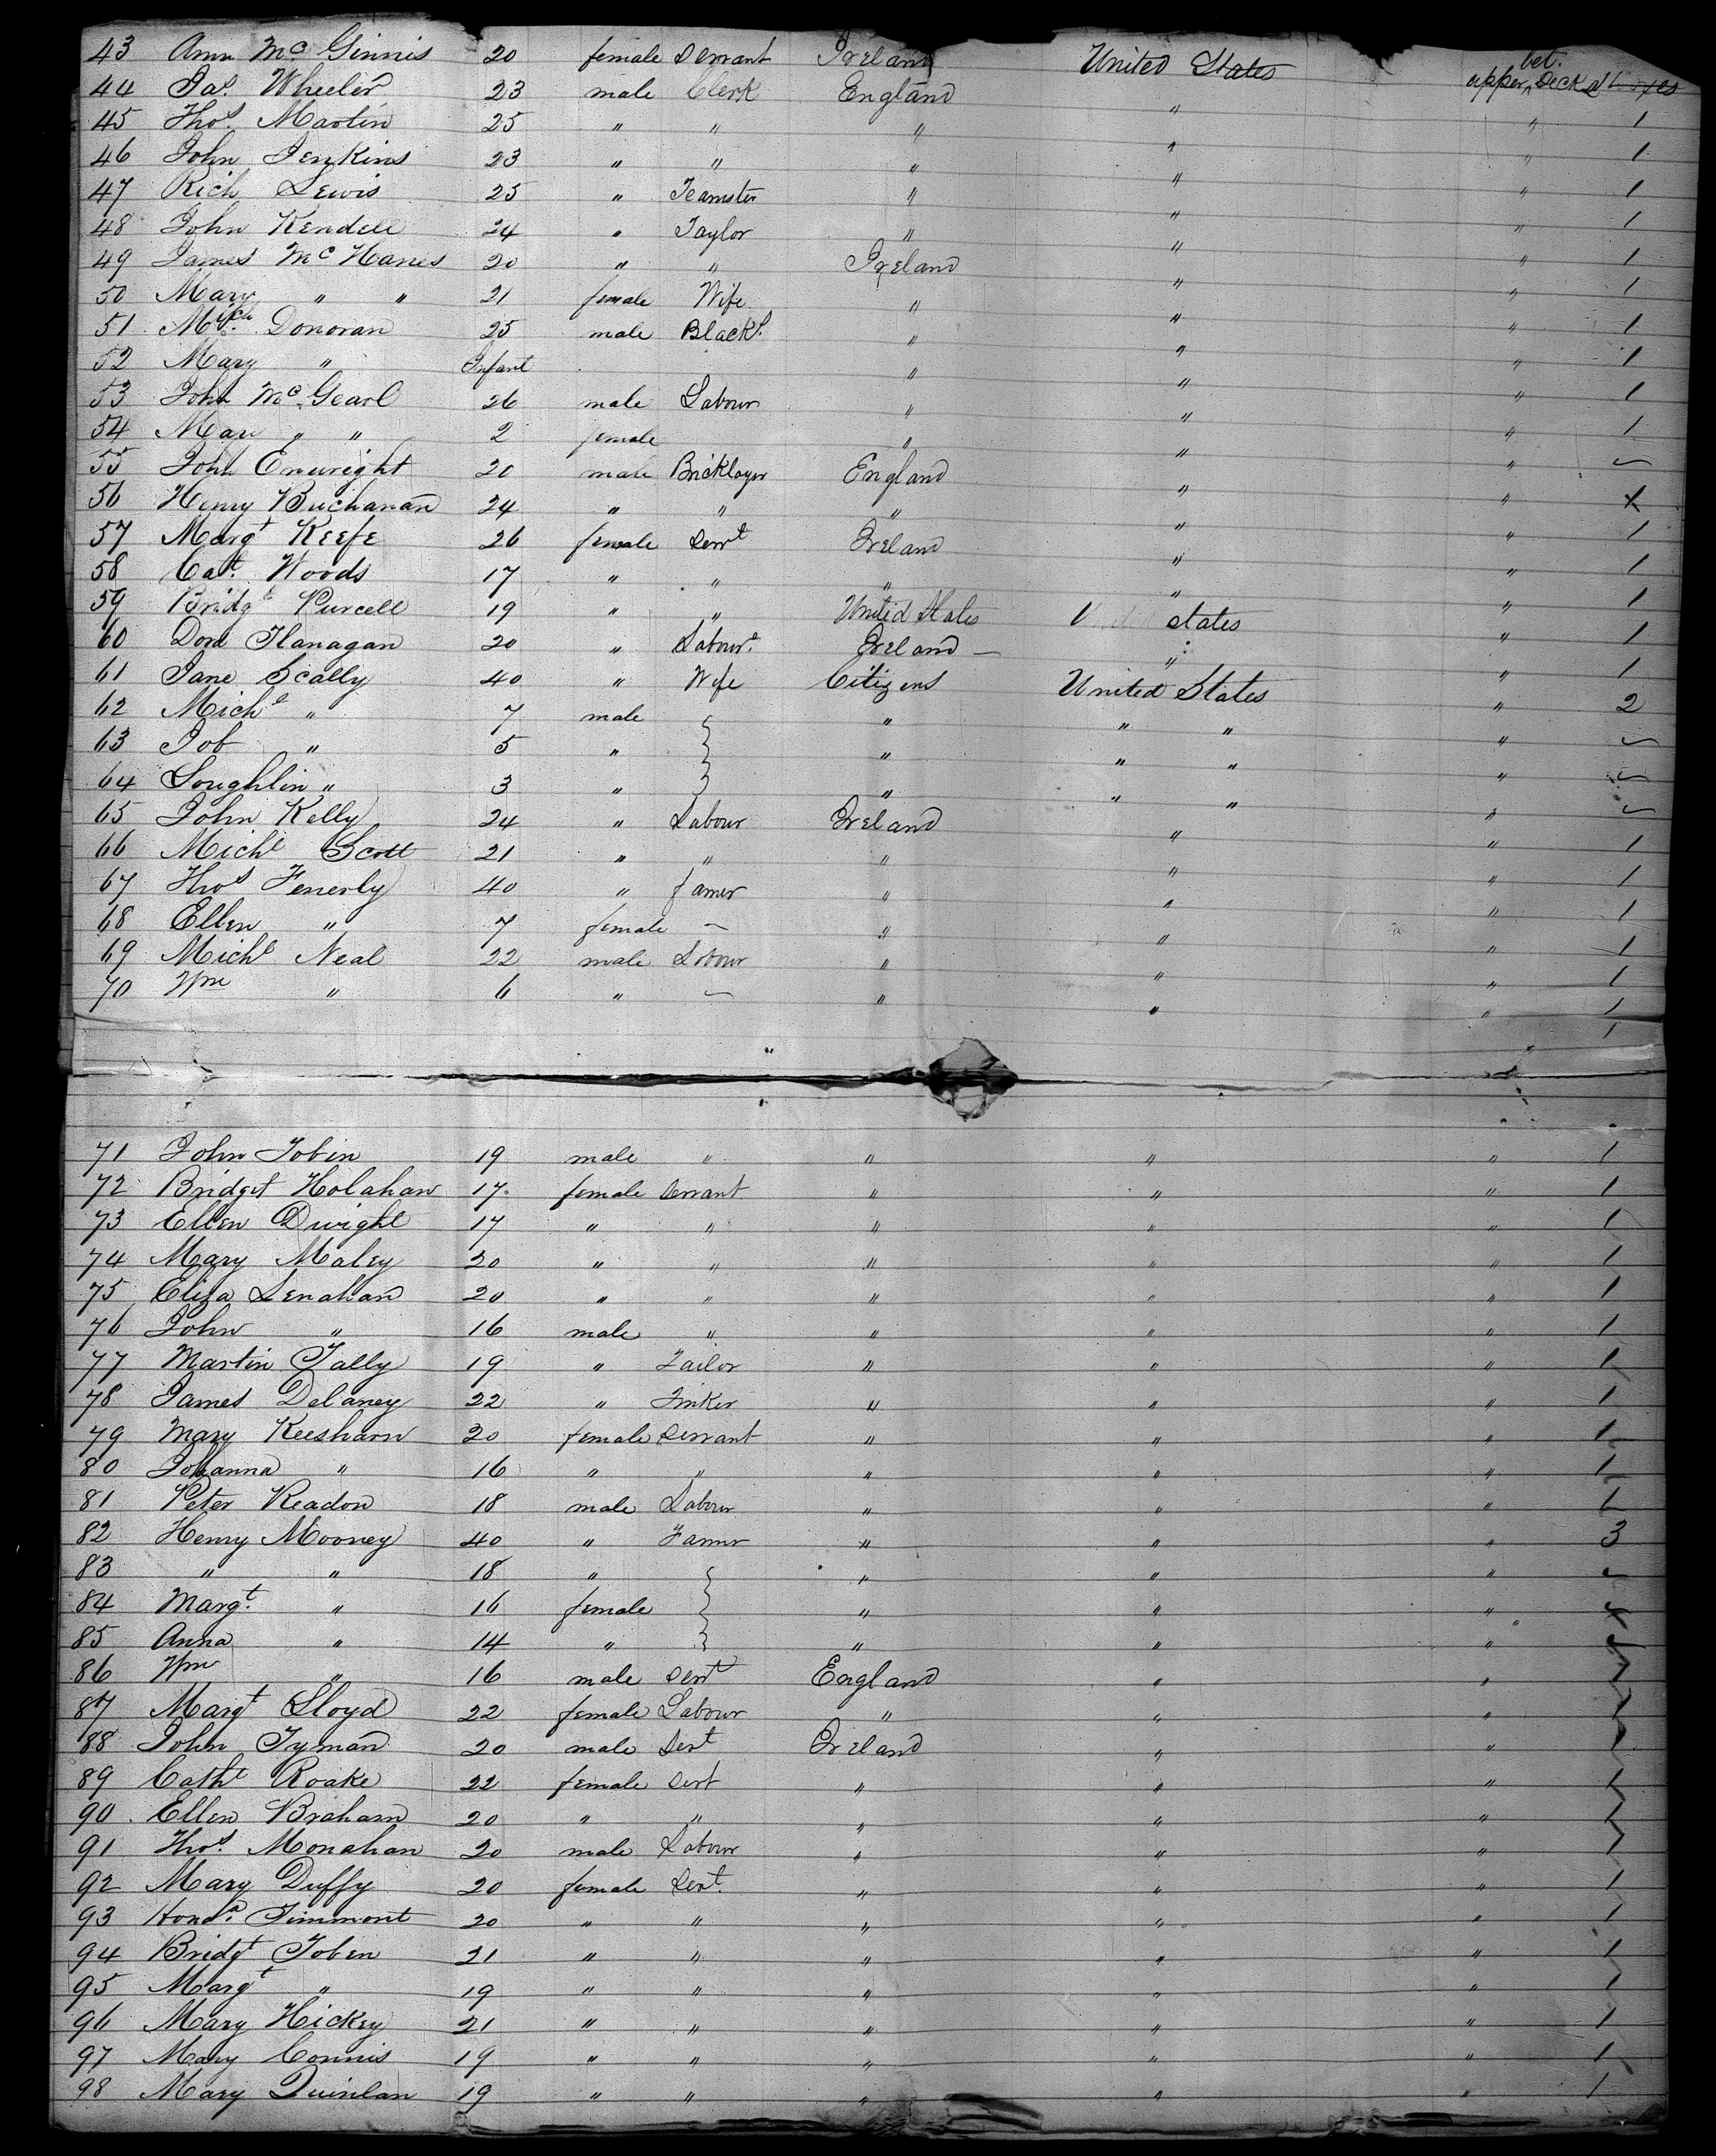 43 Ann Mc Ginnis 20 female Servant Ireland United States upper bet. Deck 2
44 Jas Wheeler 23 male Clerk England " " 1
45 Thos. Martin 25 " " " " " 1
46 John Jenkins 23 " " " " " 1
47 Rich Lewis 25 " Teamster " " " 1
48 John Kendell 24 " Taylor " " " 1
49 James Mc Hanes 20 " " Ireland " " 1
50 Mary " " 21 female Wife " " " 1
51 Mich. Donovan 25 male Blacks. " " " 1
52 Mary " Infant " " " 1
53 John Mc Gearl 26 male Labour " " " 1
54 Mary " " 2 female " " "
55 John Enwright 20 male Bricklayer England " "
56 Henry Buchanan 24 " " " " " 1
57 Margt Keefe 26 female Servt Ireland " " 1
58 Cat. Woods 17 " " " " " 1
59 Bridgt Purcell 19 " " United States States " 1
60 Don Flanagan 20 " Labour. Ireland — " " 1
61 Jane Scally 40 " Wife Citizens United States " 2
62 Michl " 7 male " " " "
63 Job " 5 " " " " "
64 Loughlin " 3 " " " " "
65 John Kelly 24 " Labour Ireland " " 1
66 Michl Scott 21 " " " " " 1
67 Thos Fenerly 40 " famer " " " 1
68 Ellen " 7 female — " " " 1
69 Michl Neal 22 male Labour " " " 1
70 Wm " 6 " — " " " 1
71 John Tobin 19 male " " " " 1
72 Bridget Holahan 17. female Servant " " " 1
73 Ellen Dwight 17 " " " " " 1
74 Mary Maley 20 " " " " " 1
75 Eliza Lenahan 20 " " " " " 1
76 John " 16 male " " " " 1
77 Martin Tally 19 " Tailor " " " 1
78 James Delaney 22 " Tinker " " " 1
79 Mary Keesham 20 female Servant " " " 1
80 Johanna " 16 " " " " " 1
81 Peter Readon 18 male Labour " " " 1
82 Henry Mooney 40 " Famer " " " 3
83 " " 18 " " " "
84 Margt. " 16 female " " "
85 Anna " 14 " " " "
86 Wm " 16 male Sert England " " 1
87 Margt Lloyd 22 female Labour " " " 1
88 John Tyman 20 male Sert Ireland " " 1
89 Catht Roake 22 female Sert " " " 1
90 Ellen Braham 20 " " " " " 1
91 Thos. Monahan 20 male Labour " " " 1
92 Mary Duffy 20 female Sert. " " " 1
93 Honoa. Timmont 20 " " " " " 1
94 Bridgt Toben 21 " " " " " 1
95 Margt " 19 " " " " " 1
96 Mary Hickey 21 " " " " " 1
97 Mary Connis 19 " " " " " 1
98 Mary Quinlan 19 " " " " " 1